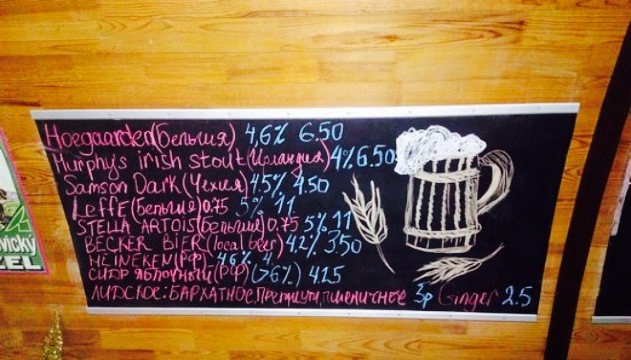 Hoegaarden (Бельгия) 4,6% 6.50
Murphys irish stout (Ирландия) 4% 6.50
Samson Dark (Чехия) 4.5% 4.50
Leffe (Бельгия) 0.75 5% 11
STELLA ARTOIS (Бельгия) 0.75 5% 11
BECKER BIER (local beer) 4.2% 3.50
HEINEKEN (РФ) 4.6% 4
СИДР ЯБЛОЧНЫЙ (РФ) (>6%) 4.25
ЛИДСКОЕ: БАРХАТНОЕ, Премиум, пшеничное 3р Ginger 2.5
ZEL